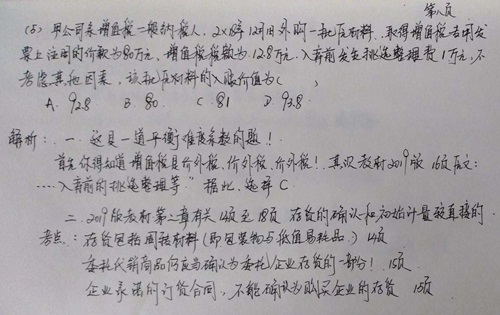 第八页
(5) 甲公司系增值税一般纳税人，2×18年12月1日外购一批原材料，取得增值税专用发
票上注明的价款为80万元，增值税税额为12.8万元，入库前发生挑选整理费1万元，不
考虑其他因素，该批原材料的入账价值为(     )
A. 92.8   B 80.   C. 81   D. 93.8
解析：一、这是一道平衡难度系数的题！
首先你得知道增值税是价外税、价外税、价外税！其次教材2019版 16页原文：
……入库前的挑选整理等"据此，选择C
二、2019版教材第二章有关14页至18页 存货的确认和初始计量较直接的
考点：存货包括周转材料(即包装物与低值易耗品) 14页
委托代销商品仍应当确认为委托企业存货的一部分！15页
企业承诺的订货合同，不能确认为购买企业的存货 15页